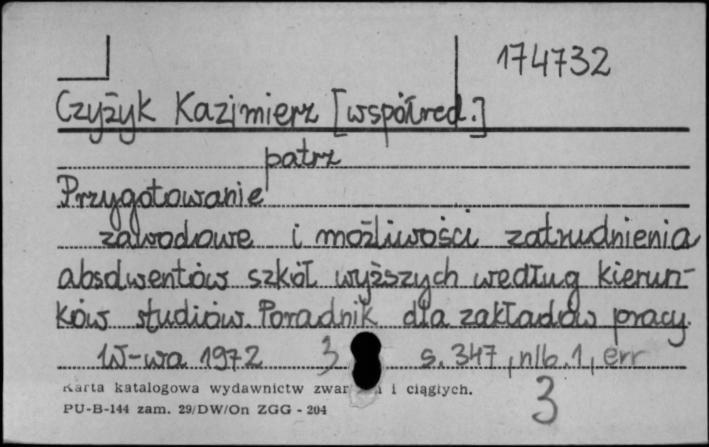 174732
Czyżyk Kazimierz [współred.]
patrz
Przygotowanie
zawodowe i możliwości zatrudnienia
absolwentów szkół wyższych według kierun-
ków studiów. Poradnik dla zakładów pracy.
W-wa 1972 3 s. 347, nlb. 1, err
Karta katalogowa wydawnictw i ciągłych.
PU-B-144 zam. 29/DW/On ZGG - 204
3